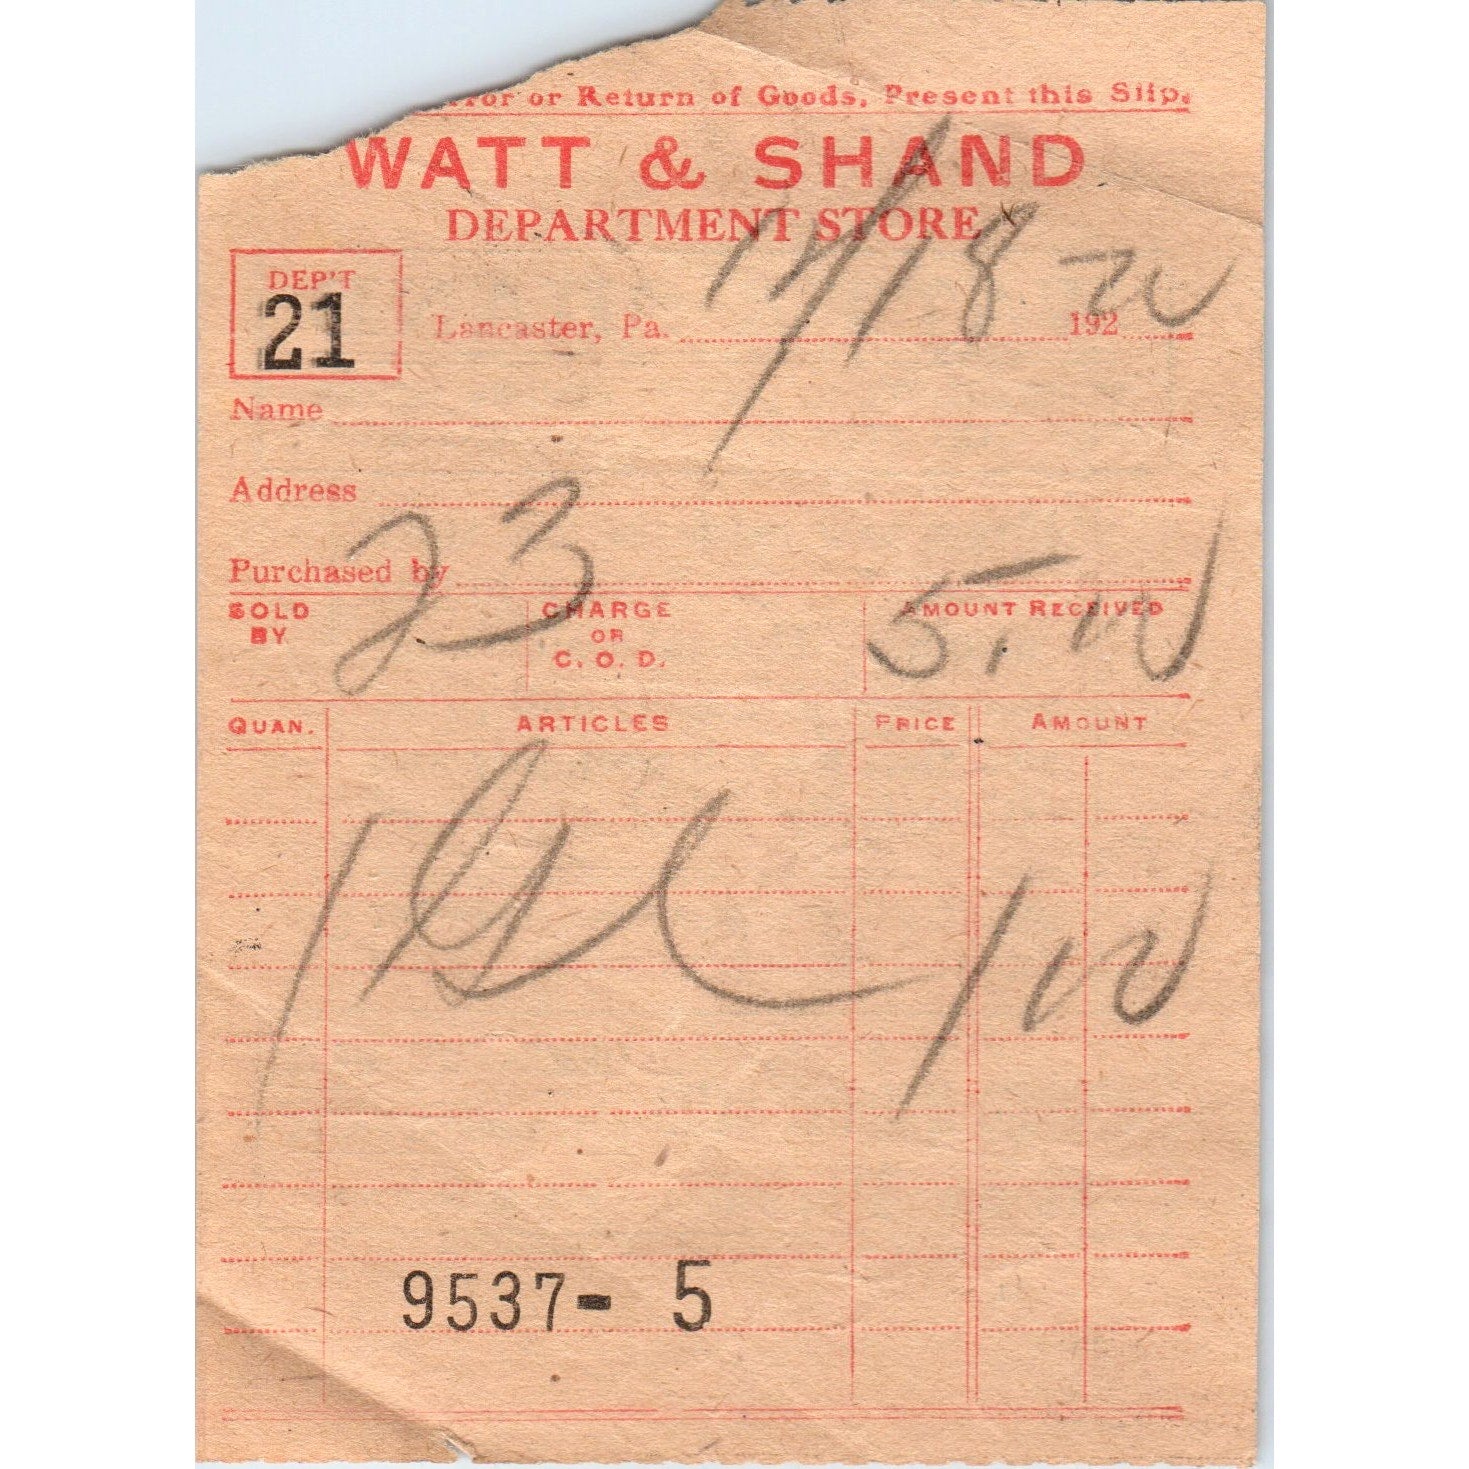 or Return of Goods, Present this Slip.
WATT & SHAND
DEPARTMENT STORE
DEP'T
21
Lancaster, Pa. 12/18 192
Name
Address
Purchased by
SOLD BY 23 CHARGE OR C. O. D. AMOUNT RECEIVED 5.00
QUAN. ARTICLES PRICE AMOUNT
1 1 00
9537- 5